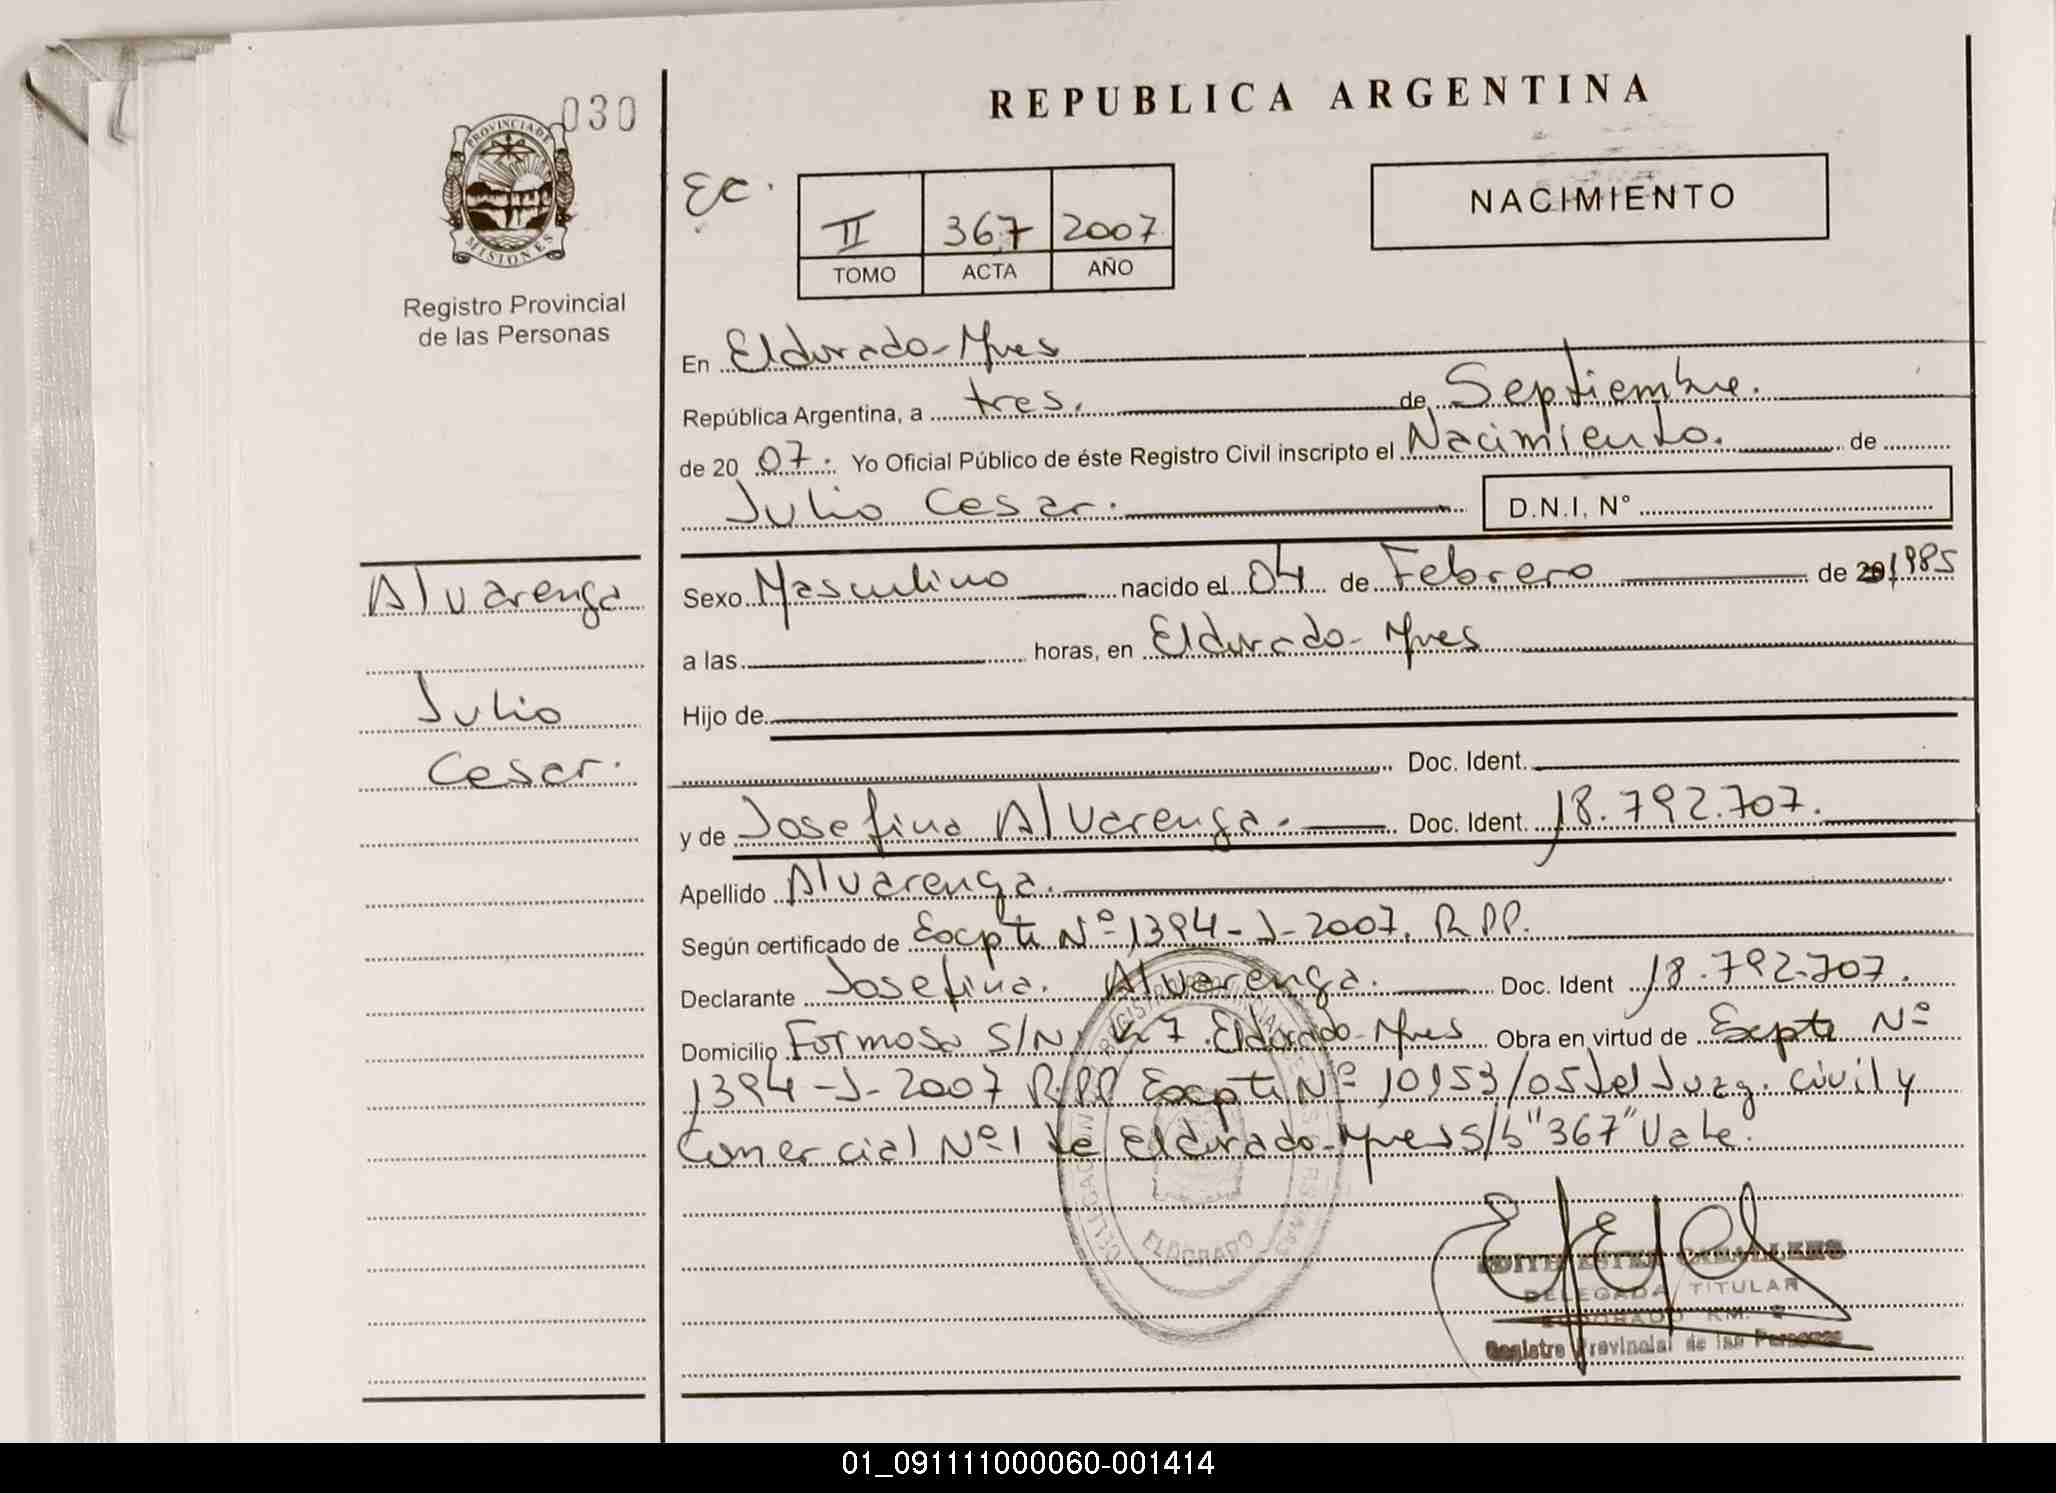 030
PROVINCIA DE
MISIONES
Registro Provincial
de las Personas
REPUBLICA ARGENTINA
EC.
II 367 2007
TOMO ACTA AÑO
NACIMIENTO
En Eldorado-Mnes
República Argentina, a tres. de Septiembre.
de 20 07. Yo Oficial Público de éste Registro Civil inscripto el Nacimiento. de
Julio Cesar. D.N.I. N°
Alvarenga
Julio
Cesar.
Sexo Masculino nacido el 04 de Febrero de 20 1985
a las horas, en Eldorado-Mnes
Hijo de
Doc. Ident.
y de Josefina Alvarenga. Doc. Ident. 18.792.707.
Apellido Alvarenga.
Según certificado de Excpte Nº 1394-J-2007. R.P.P.
Declarante Josefina. Alvarenga. Doc. Ident 18.792.707.
Domicilio Formosa S/N. K 7. Eldorado-Mnes Obra en virtud de Expte Nº
1394-J-2007 R.P.P Excpte Nº 10153/05 del Juzg. Civil y
Comercial Nº 1 de Eldorado-Mnes S/b "367" Vale.
DELEGACION
ELDORADO
EDITH ESTER CABALLERO
DELEGADA TITULAR
ELDORADO KM.
Registro Provincial de las Personas
01_091111000060-001414